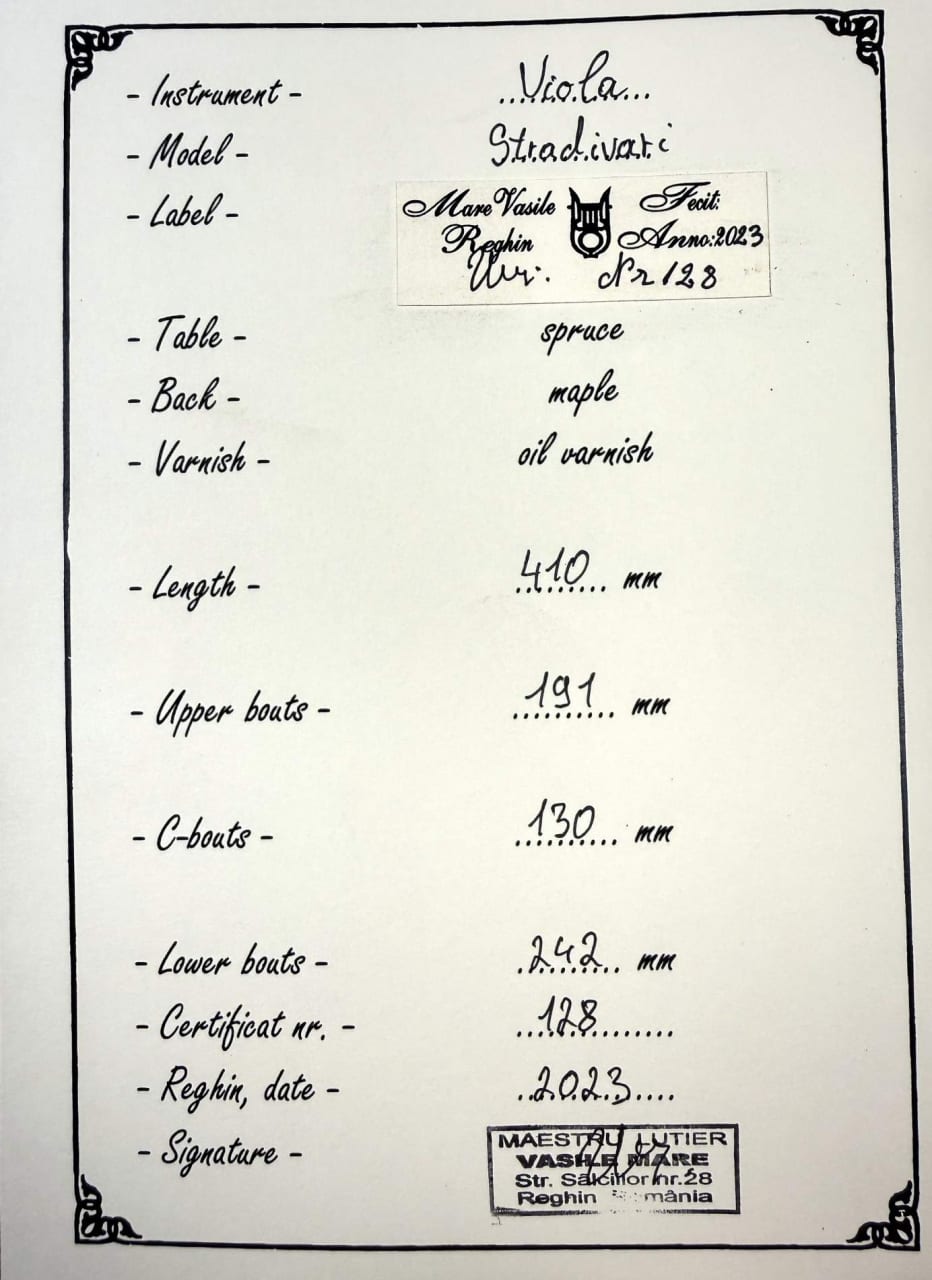 - Instrument - ...Viola...
- Model - Stradivari
- Label -
Mare Vasile Fecit:
Reghin Anno:2023
Nr 128
- Table - spruce
- Back - maple
- Varnish - oil varnish
- Length - 410 mm
- Upper bouts - 191 mm
- C-bouts - 130 mm
- Lower bouts - 242 mm
- Certificat nr. - 128
- Reghin, date - 2023
- Signature -
MAESTRU LUTIER
VASILE MARE
Str. Sălciilor nr.28
Reghin România